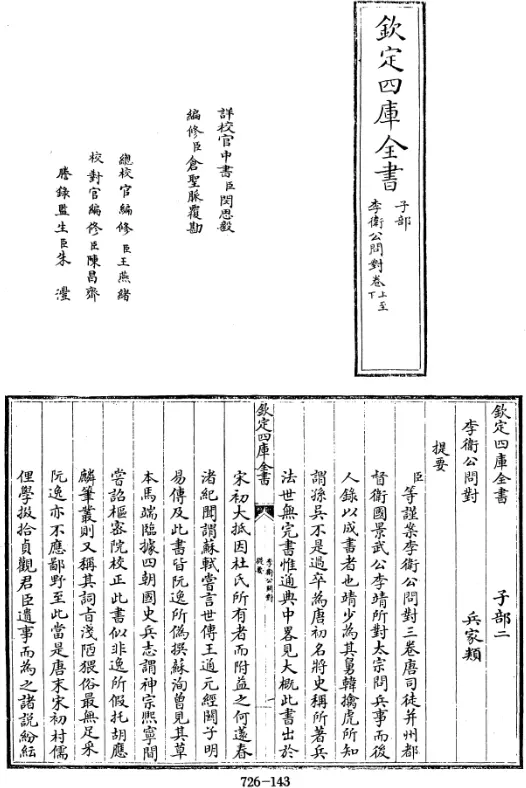 欽定四庫全書
子部
李衛公問對卷上至下
詳校官中書臣閔思毅
編修臣倉聖脈覆勘
總校官編修臣王燕緒
校對官編修臣陳昌齊
謄錄監生臣朱瀅
欽定四庫全書 子部二
李衛公問對 兵家類
提要
臣等謹案李衛公問對三卷唐司徒并州都
督衛國景武公李靖所對太宗問兵事而後
人錄以成書者也靖少為其舅韓擒虎所知
謂孫吳不是過卒為唐初名將史稱所著兵
法世無完書惟通典中畧見大概此書出於
欽定四庫全書
李衛公問對
提要
一
宋初大抵因杜氏所有者而附益之何薳春
渚紀聞謂蘇軾嘗言世傳王通元經關子明
易傳及此書皆阮逸所偽撰蘇洵曾見其草
本馬端臨據四朝國史兵志謂神宗熙寧間
嘗詔樞密院校正此書似非逸所假托胡應
麟筆叢則又稱其詞旨淺陋猥俗最無足采
阮逸亦不應鄙野至此當是唐末宋初村儒
俚學掇拾貞觀君臣遺事而為之諸說紛紜
726-143